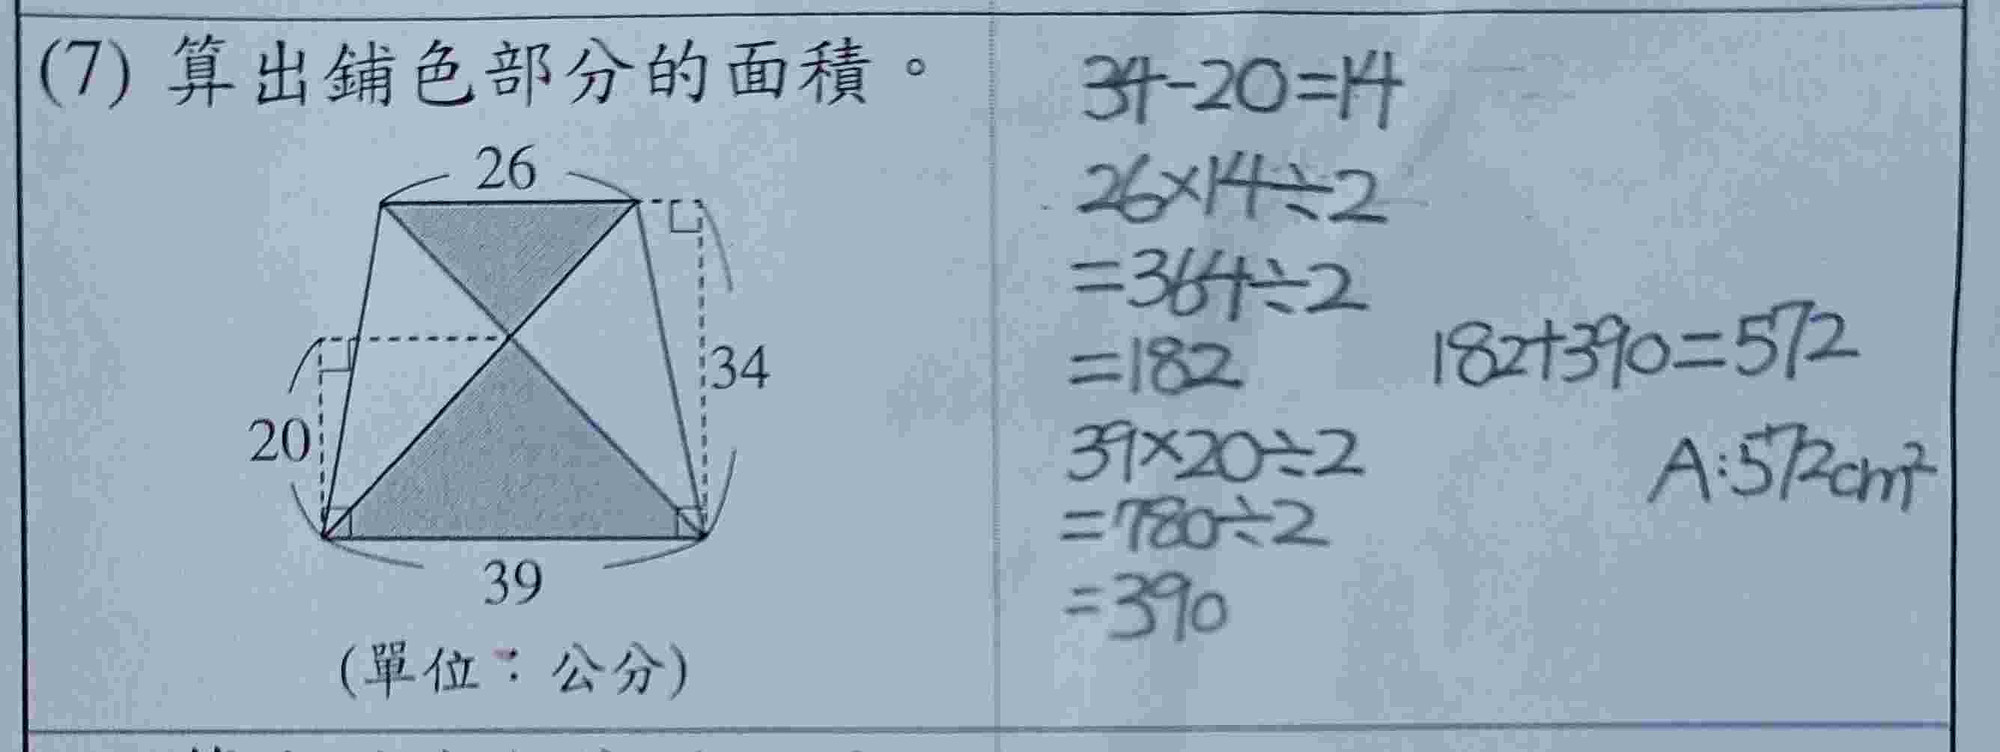 (7) 算出鋪色部分的面積。
26
34
20
39
(單位：公分)
34-20=14
26×14÷2
=364÷2
=182
39×20÷2
=780÷2
=390
182+390=572
A:572cm²